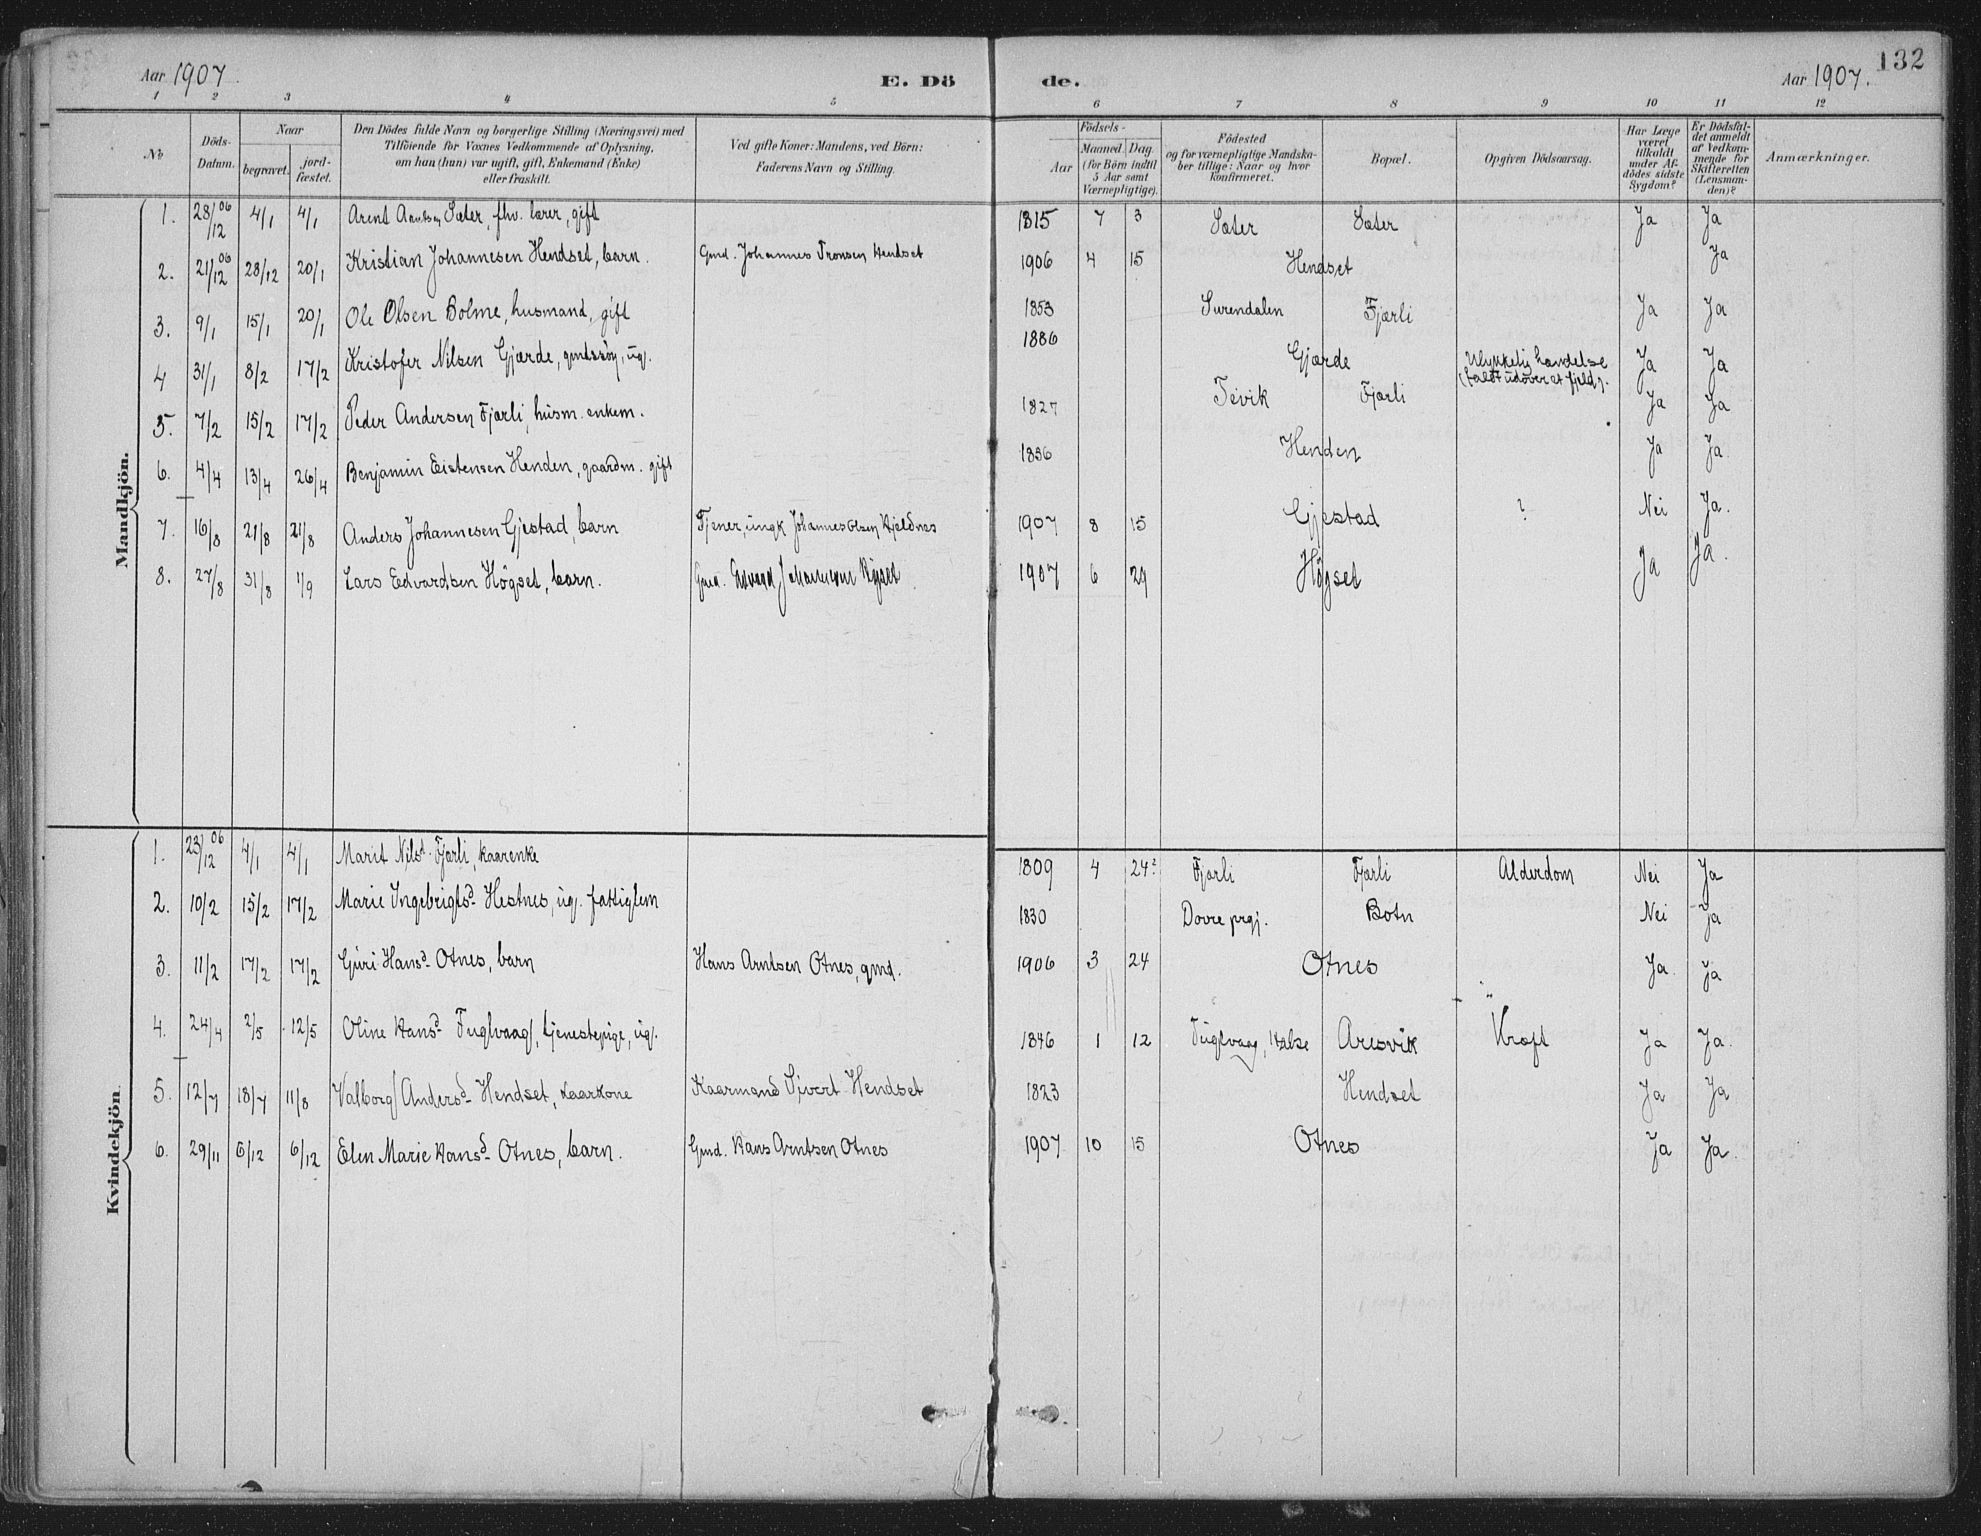 132
Aar 1907. E. Dö de. Aar 1907.
1 2 3 4 5 6 7 8 9 10 11 12
No. Döds-Datum. Naar begravet. jordfæstet. Den Dödes fulde Navn og borgerlige Stilling (Næringsvei) med Tilföiende for Voxnes Vedkommende af Oplysning, om han (hun) var ugift, gift, Enkemand (Enke) eller fraskilt. Ved gifte Koner: Mandens, ved Börn: Faderens Navn og Stilling. Födsels- Aar Maaned. Dag. (for Börn indtil 5 Aar samt Værnepligtige). Födested og for værnepligtige Mandskaber tillige: Naar og hvor konfirmeret. Bopæl. Opgiven Dödsaarsag. Har Læge været tilkaldt under Afdödes sidste Sygdom? Er Dödsfaldet anmeldt af Vedkommende for Skifteretten (Lensmanden)? Anmærkninger.
Mandkjön.
1. 28/12 06 4/1 4/1 Arent Arntsen Sæter, fhv. lærer, gift 1815 7 3 Sæter Sæter Ja Ja
2. 21/12 06 28/12 20/1 Kristian Johannesen Hendset, barn. Gmd. Johannes Tronsen Hendset 1906 4 15 Hendset Ja
3. 9/1 15/1 20/1 Ole Olsen Bolme, husmand, gift 1853 Surendalen Fjærli Ja Ja
4 31/1 8/2 17/2 Kristofer Nilsen Gjærde, gmdssøn, ug. 1886 Gjærde Ulykkelig hændelse (faldt udover et fjeld). Ja Ja
5. 7/2 15/2 17/2 Peder Andersen Fjærli, husm. enkem. 1827 Teivik Fjærli Ja Ja
6. 4/4 13/4 26/4 Benjamin Eistensen Henden, gaardm. gift 1836 Henden Ja Ja
7. 16/8 21/8 21/8 Anders Johannesen Gjestad, barn Tjener, ungk. Johannes Olsen Kjeldnes 1907 8 15 Gjestad ? Nei Ja.
8. 27/8 31/8 1/9 Lars Edvardsen Högset, barn. Gmd. Edvard 1907 6 29 Högset Ja Ja.
Kvindekjön.
1. 23/12 06 4/1 4/1 Marit Nilsd. Fjærli, kaarenke 1809 4 24? Fjærli Fjærli Alderdom Nei Ja
2. 10/2 15/2 17/2 Marie Ingebrigtsd. Hestnes, ug. fattiglem 1830 Dovre prgj. Botn Nei Ja
3. 11/2 17/2 17/2 Guri Hansd. Otnes, barn Hans Arntsen Otnes, gmd. 1906 3 24 Otnes Ja Ja
4. 24/4 2/5 12/5 Oline Hansd. Fuglvaag, tjenestepige, ug. 1846 1 12 Fuglvaag, Halse Aresvik Kræft Ja Ja.
5. 12/7 18/7 11/8 Valborg Andersd. Hendset, kaarkone Kaarmand Sivert Hendset 1823 Hendset Ja Ja
6. 29/11 6/12 6/12 Elen Marie Hansd. Otnes, barn. Gmd. Hans Arntsen Otnes 1907 10 15 Otnes Ja Ja.